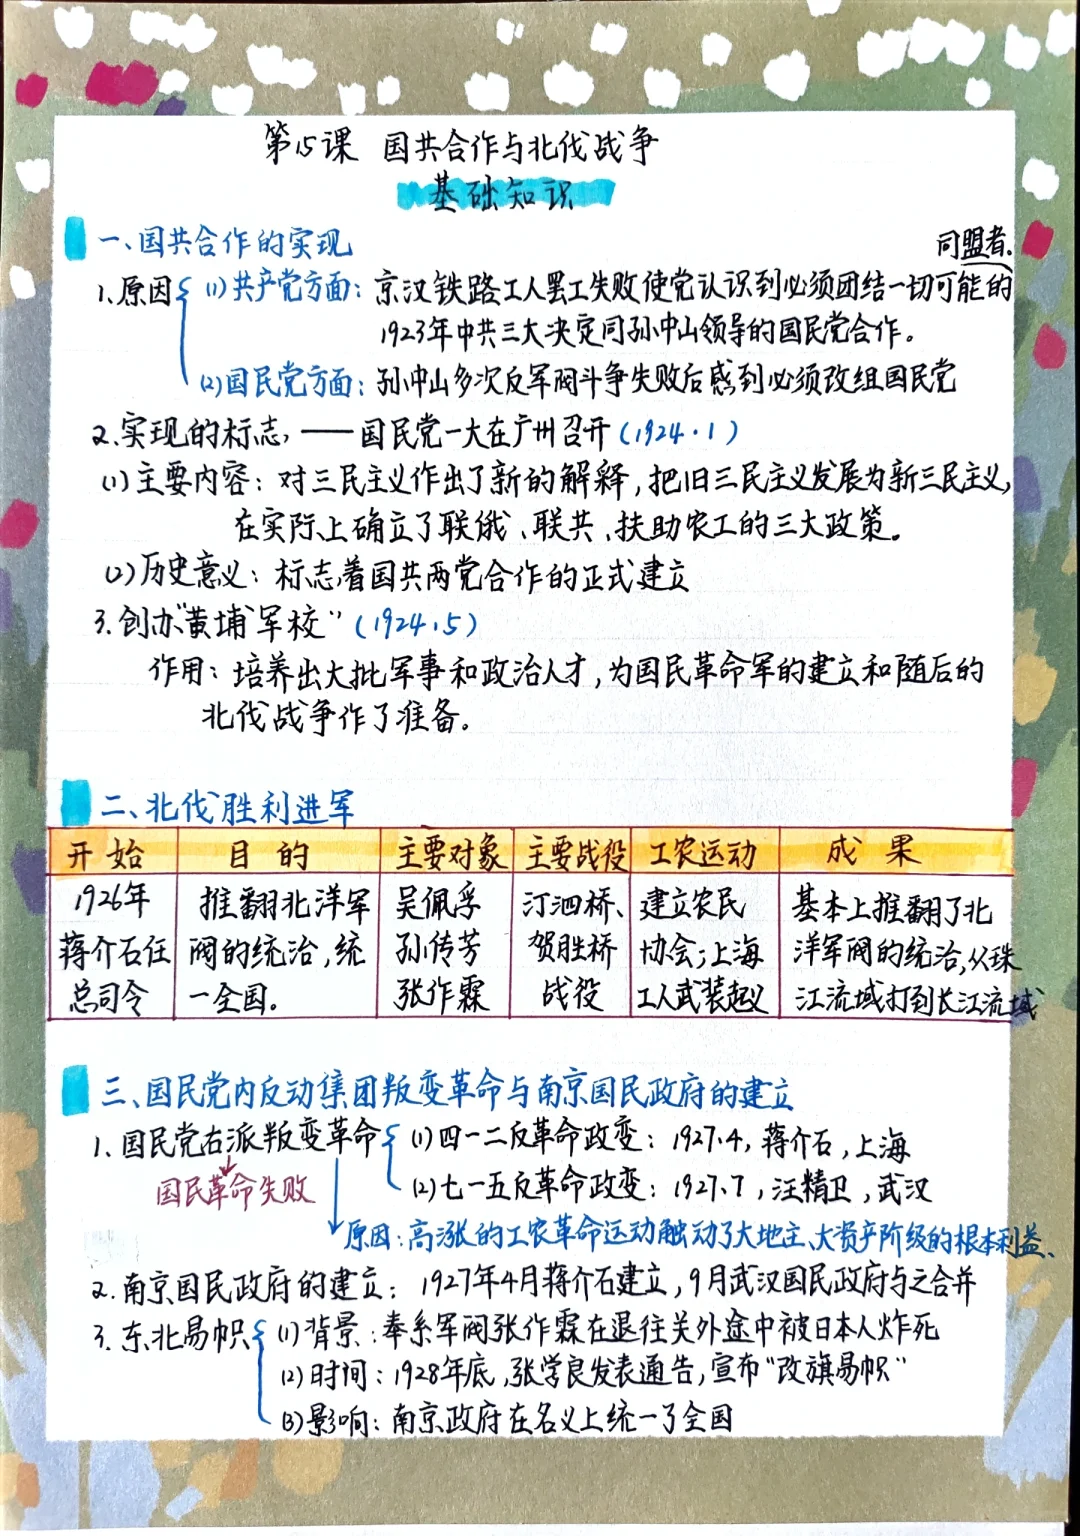 第15课 国共合作与北伐战争
基础知识
一、国共合作的实现
同盟者.
1.原因 (1)共产党方面:京汉铁路工人罢工失败使党认识到必须团结一切可能的
1923年中共三大决定同孙中山领导的国民党合作。
(2)国民党方面:孙中山多次反军阀斗争失败后感到必须改组国民党
2.实现的标志,——国民党一大在广州召开(1924.1)
(1)主要内容:对三民主义作出了新的解释,把旧三民主义发展为新三民主义,
在实际上确立了联俄、联共、扶助农工的三大政策。
(2)历史意义:标志着国共两党合作的正式建立
3.创办"黄埔军校"(1924.5)
作用:培养出大批军事和政治人才,为国民革命军的建立和随后的
北伐战争作了准备。
二、北伐胜利进军
开始 目的 主要对象 主要战役 工农运动 成果
1926年 推翻北洋军 吴佩孚 汀泗桥、 建立农民 基本上推翻了北
蒋介石任 阀的统治,统 孙传芳 贺胜桥 协会;上海 洋军阀的统治,从珠
总司令 一全国。 张作霖 战役 工人武装起义 江流域打到长江流域
三、国民党内反动集团叛变革命与南京国民政府的建立
1.国民党右派叛变革命 (1)四一二反革命政变:1927.4,蒋介石,上海
国民革命失败 (2)七一五反革命政变:1927.7,汪精卫,武汉
原因:高涨的工农革命运动触动了大地主、大资产阶级的根本利益、
2.南京国民政府的建立:1927年4月蒋介石建立,9月武汉国民政府与之合并
3.东北易帜 (1)背景:奉系军阀张作霖在退往关外途中被日本人炸死
(2)时间:1928年底,张学良发表通告,宣布"改旗易帜"
(3)影响:南京政府在名义上统一了全国